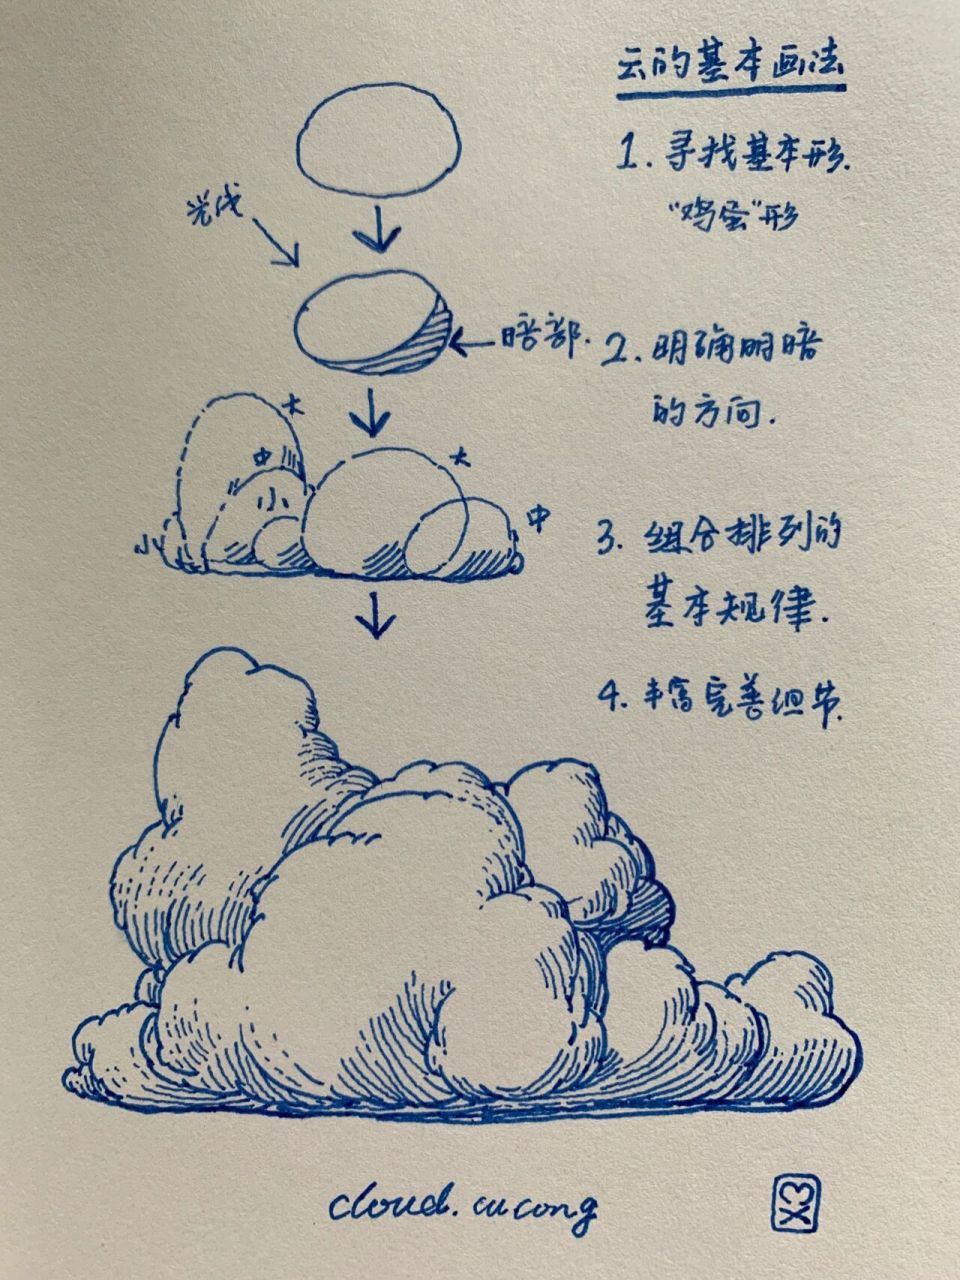 云的基本画法
1. 寻找基本形.
“鸡蛋”形
光线
暗部.
2. 明确明暗
的方向.
大
中
小
小
大
中
3. 组合排列的
基本规律.
4. 丰富完善细节.
cloud. cu cong